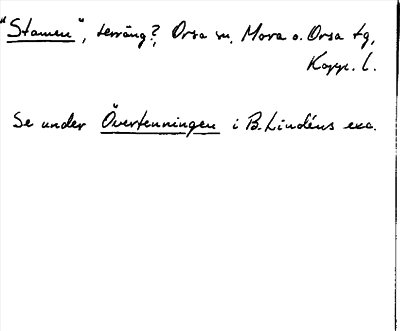 "Stamen", terräng?, Orsa sn, Mora o. Orsa tg,
Kopp. l.
Se under Övertenningen i B. Lindéns exc.